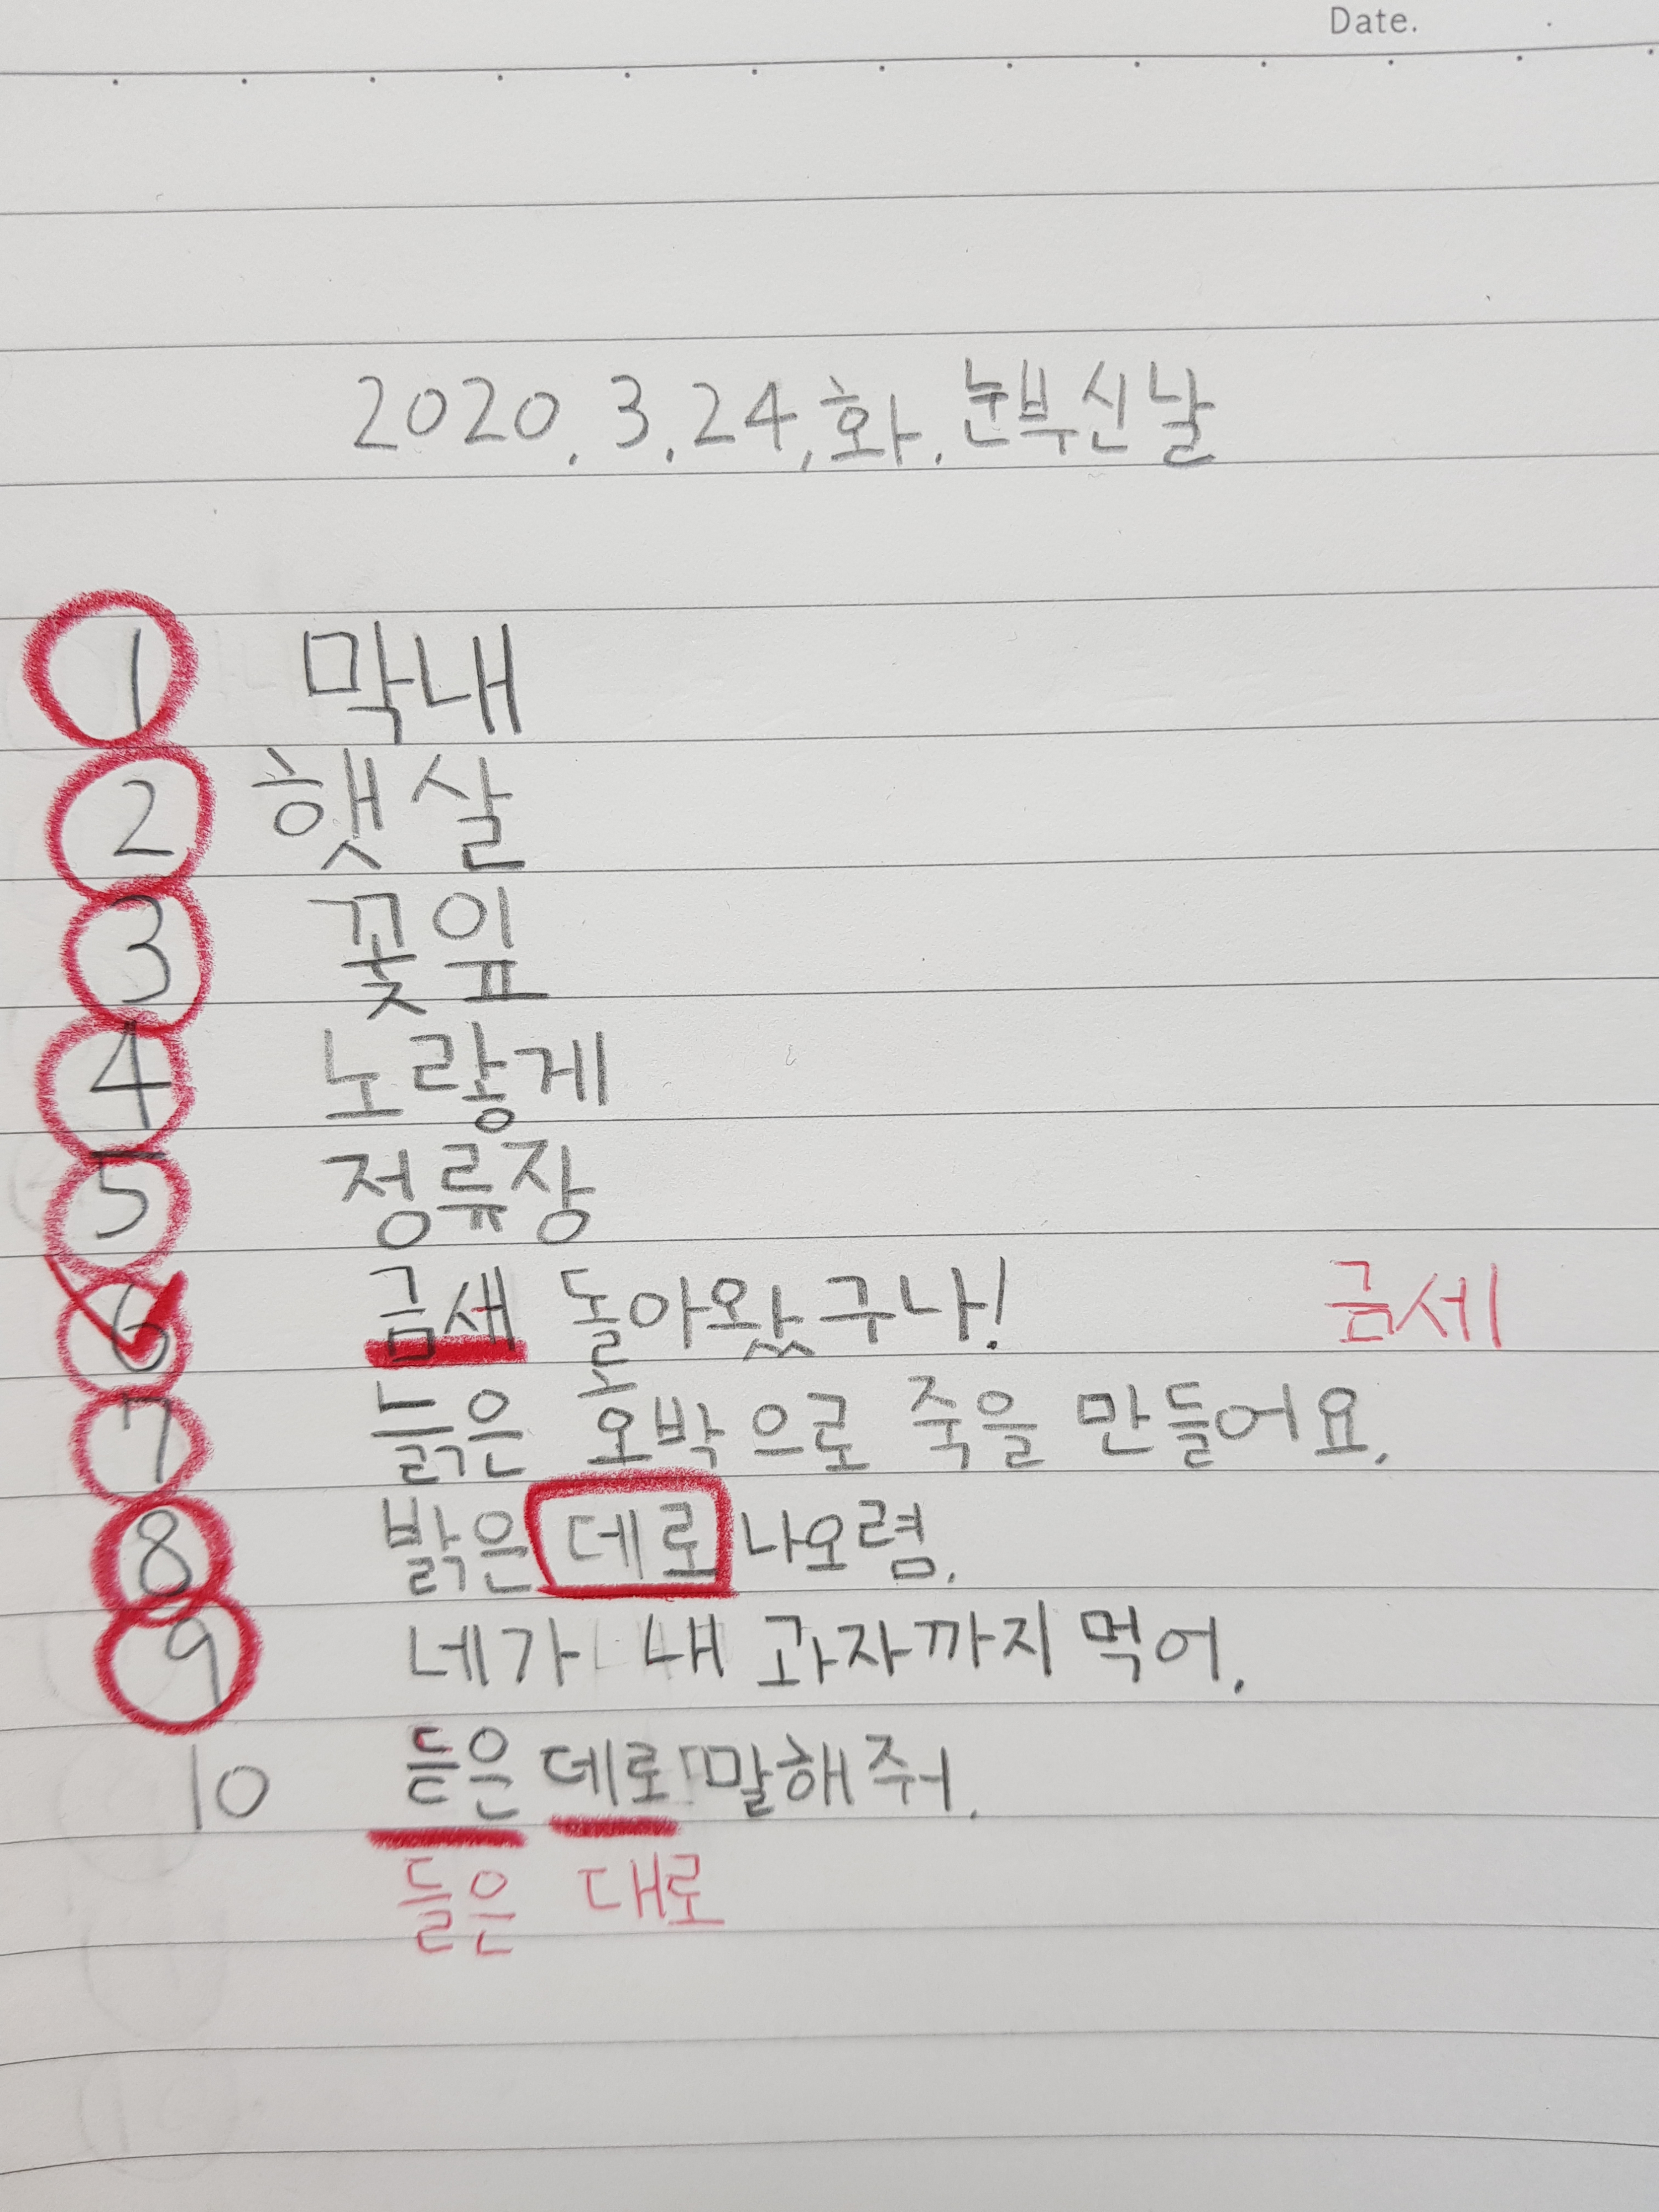 Date.
2020.3.24,화.눈부신날
1 막내
2 햇살
3 꽃잎
4 노랗게
5 정류장
6 금새 돌아왔구나! 금세
7 늙은 호박으로 죽을 만들어요.
8 밝은 데로 나오렴.
9 네가 내 과자까지 먹어.
10 듣은 데로 말해줘.
들은 대로